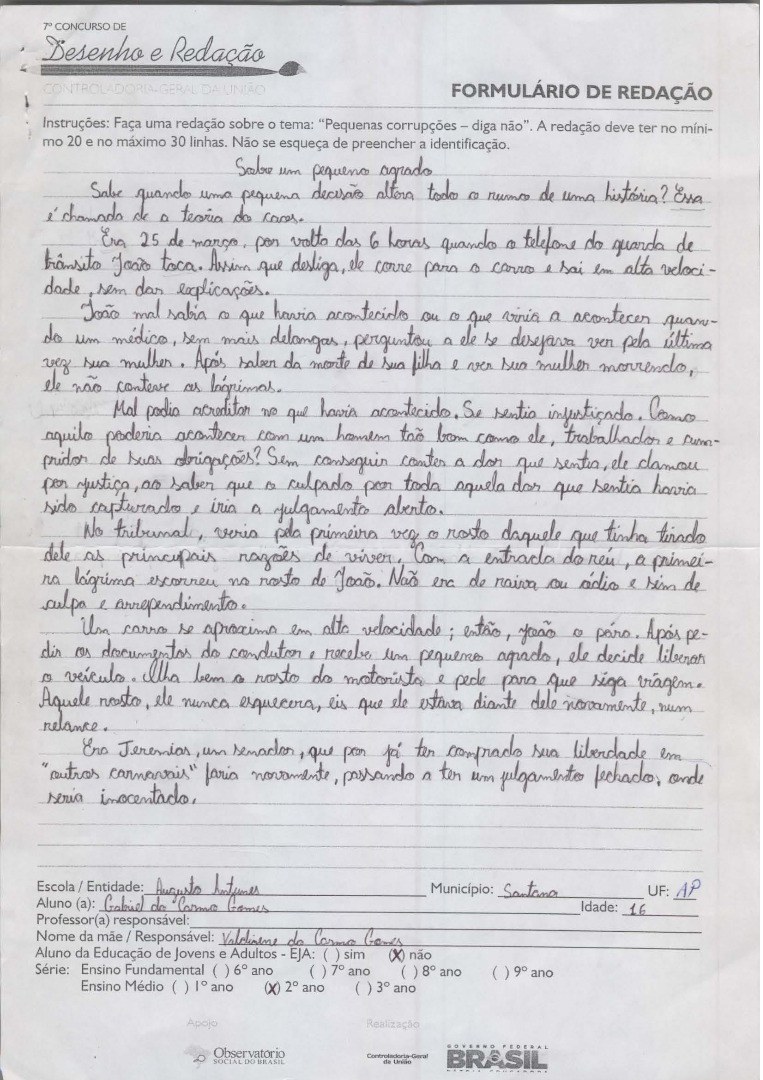 7º CONCURSO DE
Desenho e Redação
CONTROLADORIA-GERAL DA UNIÃO
FORMULÁRIO DE REDAÇÃO
Instruções: Faça uma redação sobre o tema: “Pequenas corrupções – diga não”. A redação deve ter no míni-
mo 20 e no máximo 30 linhas. Não se esqueça de preencher a identificação.
Sobre um pequeno agrado
Sabe quando uma pequena decisão altera todo o rumo de uma história? Essa
é chamada de a teoria do caos.
Era 25 de março, por volta das 6 horas quando o telefone do guarda de
trânsito João toca. Assim que desliga, ele corre para o carro e sai em alta veloci-
dade, sem dar explicações.
João mal sabia o que havia acontecido ou o que viria a acontecer quan-
do um médico, sem mais delongas, perguntou a ele se desejava ver pela última
vez sua mulher. Após saber da morte de sua filha e ver sua mulher morrendo,
ele não conteve as lágrimas.
Mal podia acreditar no que havia acontecido. Se sentia injustiçado. Como
aquilo poderia acontecer com um homem taõ bom como ele, trabalhador e cum-
pridor de suas obrigações? Sem conseguir conter a dor que sentia, ele clamou
por justiça, ao saber que o culpado por toda aquela dor que sentia havia
sido capturado e iria a julgamento aberto.
No tribunal, veria pela primeira vez o rosto daquele que tinha tirado
dele as principais razões de viver. Com a entrada do réu, a primei-
ra lágrima escorreu no rosto de João. Não era de raiva ou ódio e sim de
culpa e arrependimento.
Um carro se aproxima em alta velocidade; então, João o pára. Após pe-
dir os documentos do condutor e receber um pequeno agrado, ele decide liberar
o veículo. Olha bem o rosto do motorista e pede para que siga viagem.
Aquele rosto, ele nunca esquecera, eis que ele estava diante dele novamente, num
relance.
Era Jeremias, um senador, que por já ter comprado sua liberdade em
"outros carnavais" faria novamente, passando a ter um julgamento fechado, onde
seria inocentado.
Escola / Entidade: Augusto Antunes Município: Santana UF: AP
Aluno (a): Gabriel do Carmo Gomes Idade: 16
Professor(a) responsável:
Nome da mãe / Responsável: Valdirene do Carmo Gomes
Aluno da Educação de Jovens e Adultos - EJA: ( ) sim (X) não
Série: Ensino Fundamental ( ) 6º ano ( ) 7º ano ( ) 8º ano ( ) 9º ano
Ensino Médio ( ) 1º ano (X) 2º ano ( ) 3º ano
Apoio Realização
Observatório SOCIAL DO BRASIL
Controladoria-Geral da União
GOVERNO FEDERAL
BRASIL